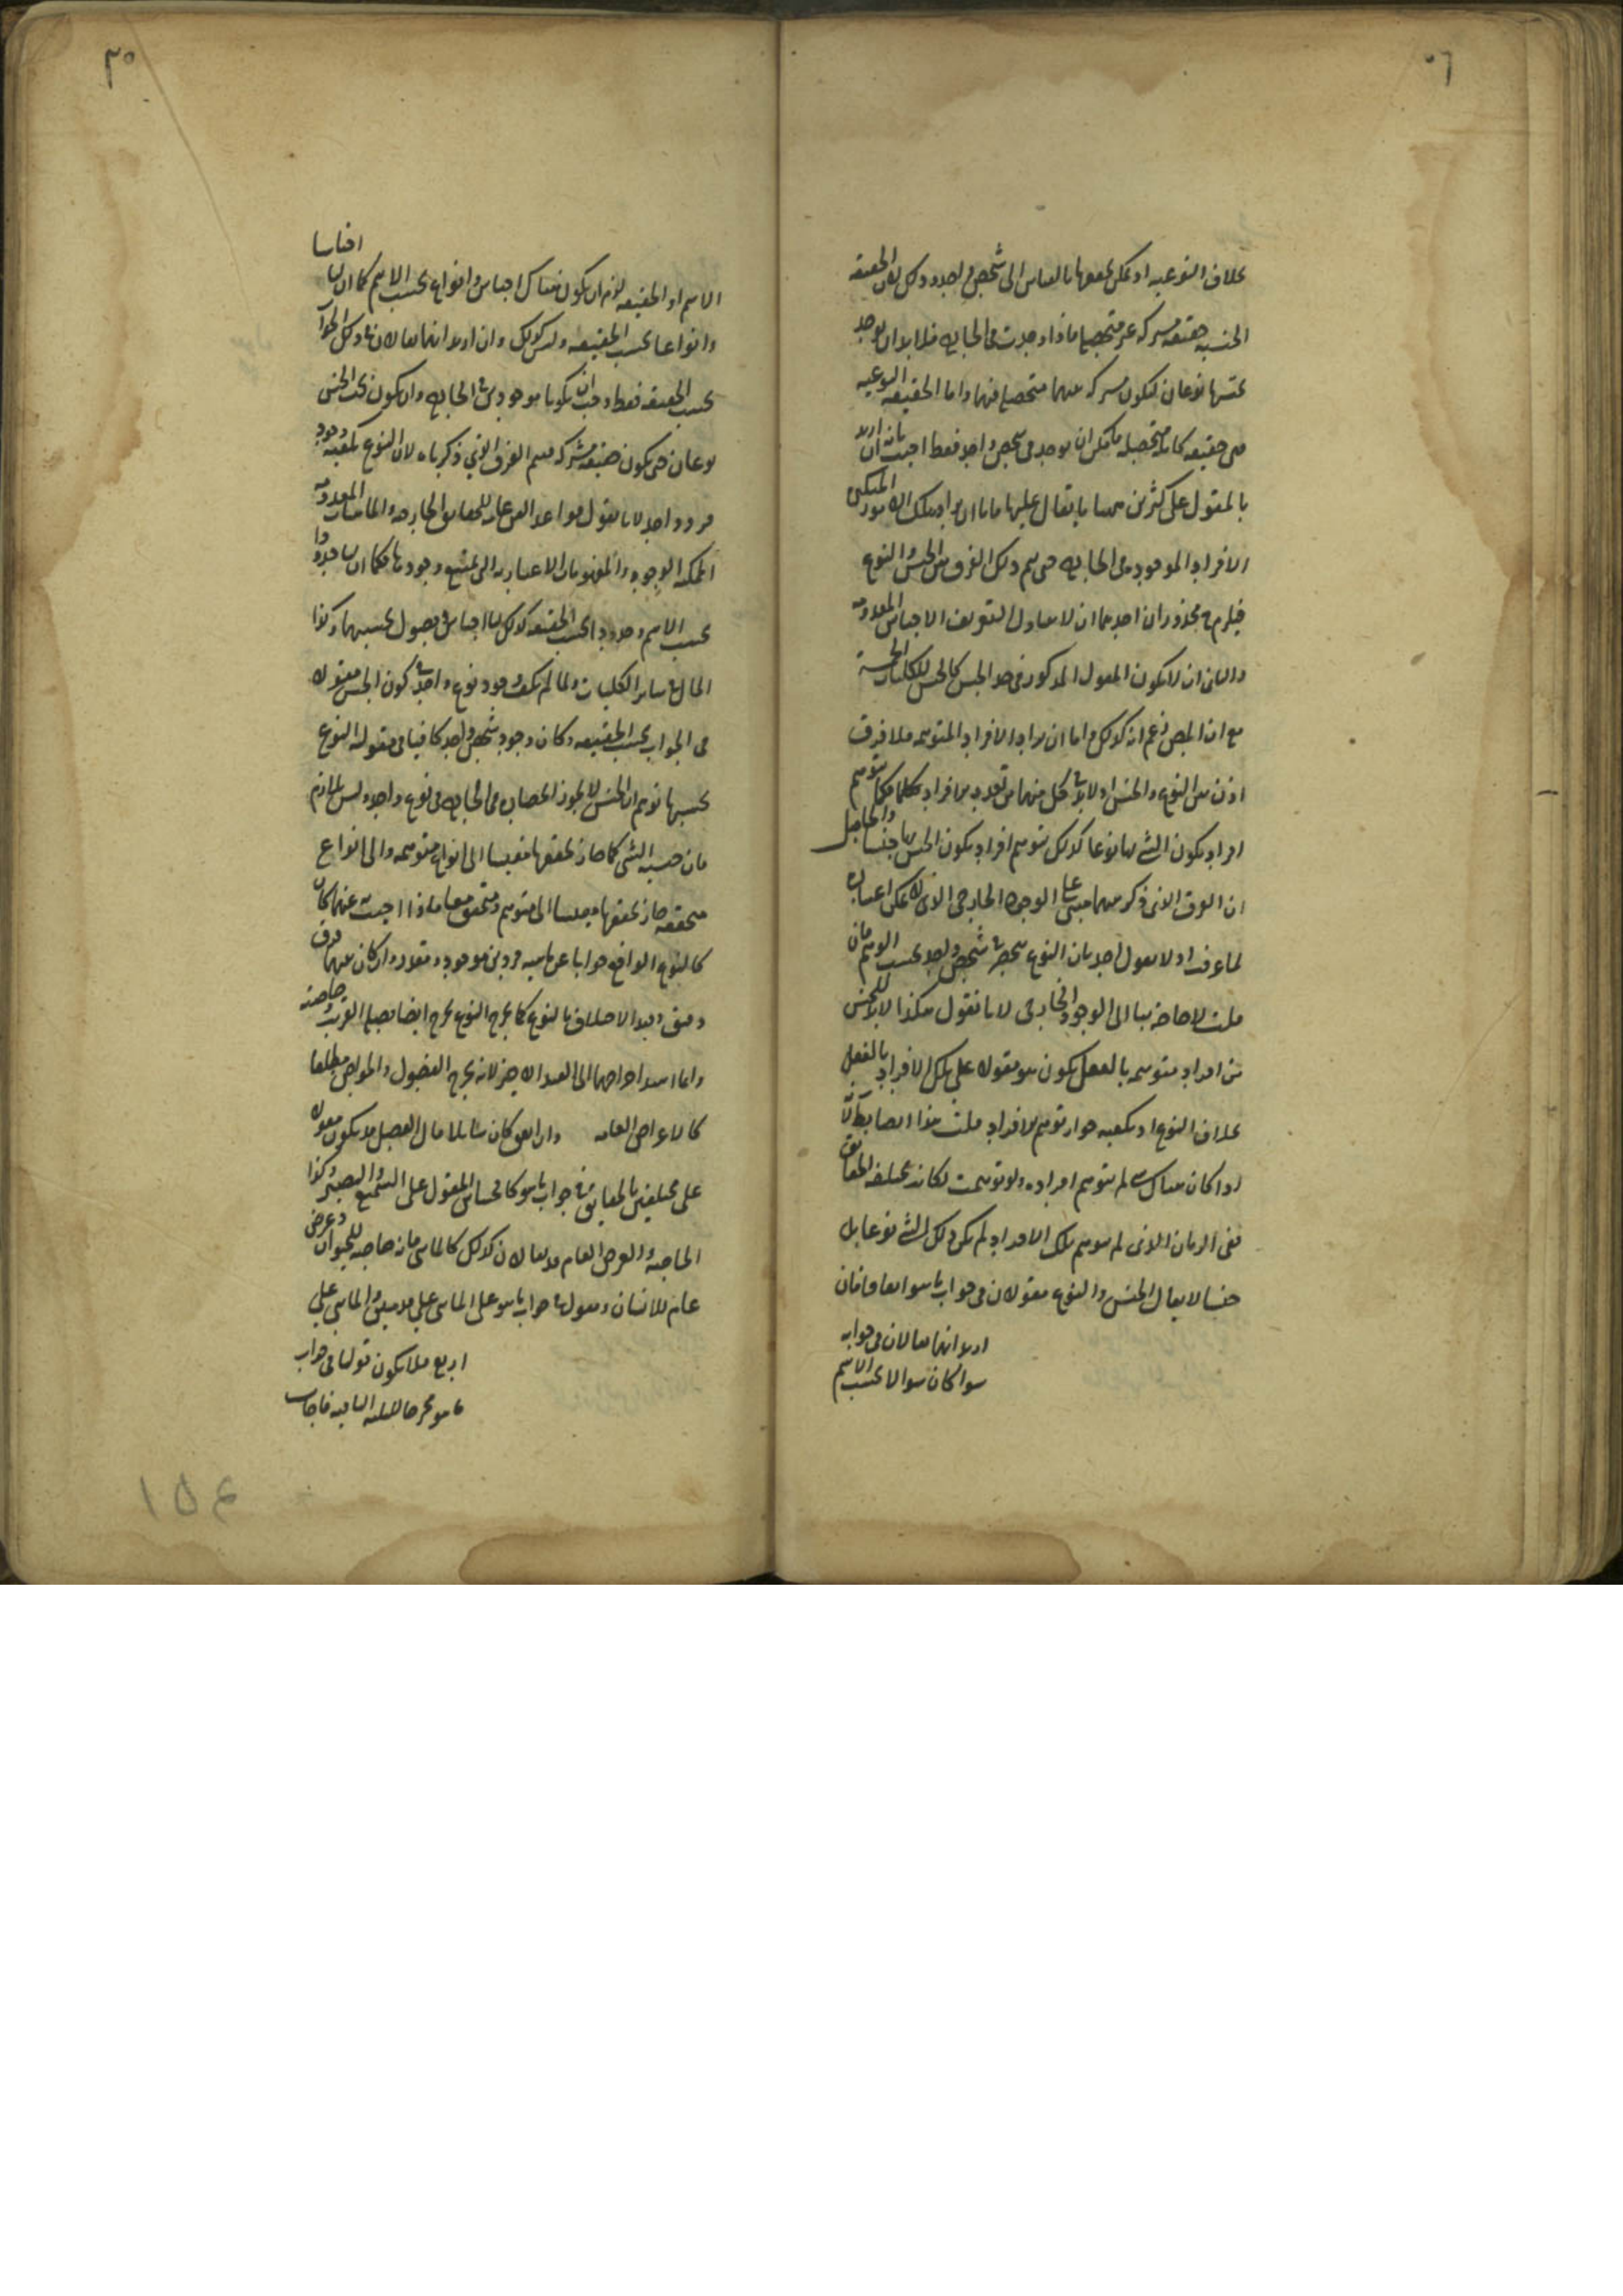 ٥٦
بخلاف النوعية اذ يمكن تحققها بالقياس الى شخص واحد وذلك لان الحقيقة
الجنسية حقيقة مشتركة غير متحصلة فاذا وجدت في الخارج فلا بد ان يوجد
تحتها نوعان لتكون مشتركة بينهما متحصلة فيهما واما الحقيقة النوعية
فهي حقيقة كاملة متحصلة يمكن ان يوجد في شخص واحد فقط اجيب بانه ان اريد
بالمقول على كثيرين ما يقال عليها فاما ان يراد بتلك الامور المتكثرة
الافراد الموجودة في الخارج حتى يتم ذلك الفرق بين الجنس والنوع
فيلزم محذوران احدهما ان لا يتناول التعريف الاجناس المعدومة
والثاني ان لا يكون المقول المذكور في حد الجنس كالجنس للكليات الخمسة
مع ان المص زعم انه كذلك واما ان يراد الافراد المتوهمة فلا فرق
اذن بين النوع والجنس اذ لا بد في كل منهما من تعدد الافراد فكما يتوهم
افراد يكون الشيء لها نوعا كذلك يتوهم افراد يكون الجنس لها جنسا والحاصل
ان الفرق الذي ذكر بينهما مبني على الوجود الخارجي الذي لا يمكن اعتباره
لما عرفت اذ لا يقول احد بان النوع ينحصر في شخص واحد بحسب التوهم فان
قلت لا حاجة بنا الى الوجود الخارجي لانا نقول هكذا لا بد للجنس
من افراد متوهمة بالفعل يكون هو مقولا على تلك الافراد بالفعل
بخلاف النوع اذ يكفيه جواز توهم الافراد قلت هذا ايضا باطل لانه
اذا كان هناك شيء لم يتوهم افراده ولو توهمت لكانت مختلفة الحقائق
ففي الزمان الذي لم يتوهم تلك الافراد لم يكن ذلك الشيء نوعا بل
جنسا لا يقال الجنس والنوع مقولان في جواب ما هو اتفاقا فان
اريد انهما يقالان في جوابه
سواء كان سؤالا بحسب الاسم
٣٥
الاسم او الحقيقة لزم ان يكون هناك اجناس وانواع بحسب الاسم كما ان لها اجناسا
وانواعا بحسب الحقيقة وليس كذلك وان اريد انهما يقالان في ذلك الجواب
بحسب الحقيقة فقط وجب ان يكونا موجودين في الخارج وان يكون تحت الجنس
نوعان حتى يكون حقيقة مشتركة فيتم الفرق الذي ذكرناه لان النوع يكفيه وجود
فرد واحد لانا نقول قواعد الفن عامة للحقائق الخارجية والماهيات المعدومة
الممكنة الوجود والمفهومات الاعتبارية التي يمتنع وجودها فكما ان لها حدودا
بحسب الاسم وحدودا بحسب الحقيقة كذلك لها اجناس وفصول بحسبهما وكذا
الحال في سائر الكليات ولما لم يكف وجود نوع واحد في كون الجنس مقولا
في الجواب بحسب الحقيقة وكان وجود شخص واحد كافيا في مقولية النوع
بحسبها توهم ان الجنس لا يجوز انحصاره في الخارج في نوع واحد وليس بلازم
فان جنسية الشيء كما جاز تحققها مقيسا الى انواع متوهمة والى انواع
متحققة جاز تحققها مقيسا الى متوهم ومتحقق معا فاذا اجيب به عنهما كان
كالنوع الواقع جوابا عن ماهية فردين موجود ومقدر وان كان بينهما فرق
دقيق وقيد الاختلاف بالنوع كما يخرج النوع يخرج ايضا فصله القريب وخاصته
واما اسند اخراجهما الى القيد الاخير لانه يخرج الفصول والخواص مطلقا
كالاعراض العامة وان ابقى كان شاملا فان الفصل قد يكون مقولا
على مختلفين بالحقائق في جواب ما هو كالحساس المقول على السميع والبصير وكذا
الخاصة والعرض العام قد يقالان كذلك كالماشي فانه خاصة للحيوان وعرض
عام للانسان ومقول في جواب ما هو على الماشي على قدمين والماشي على
اربع فلا يكون قولنا في جواب
ما هو مخرجا للثلثة الباقية فاجاب
١٥٤